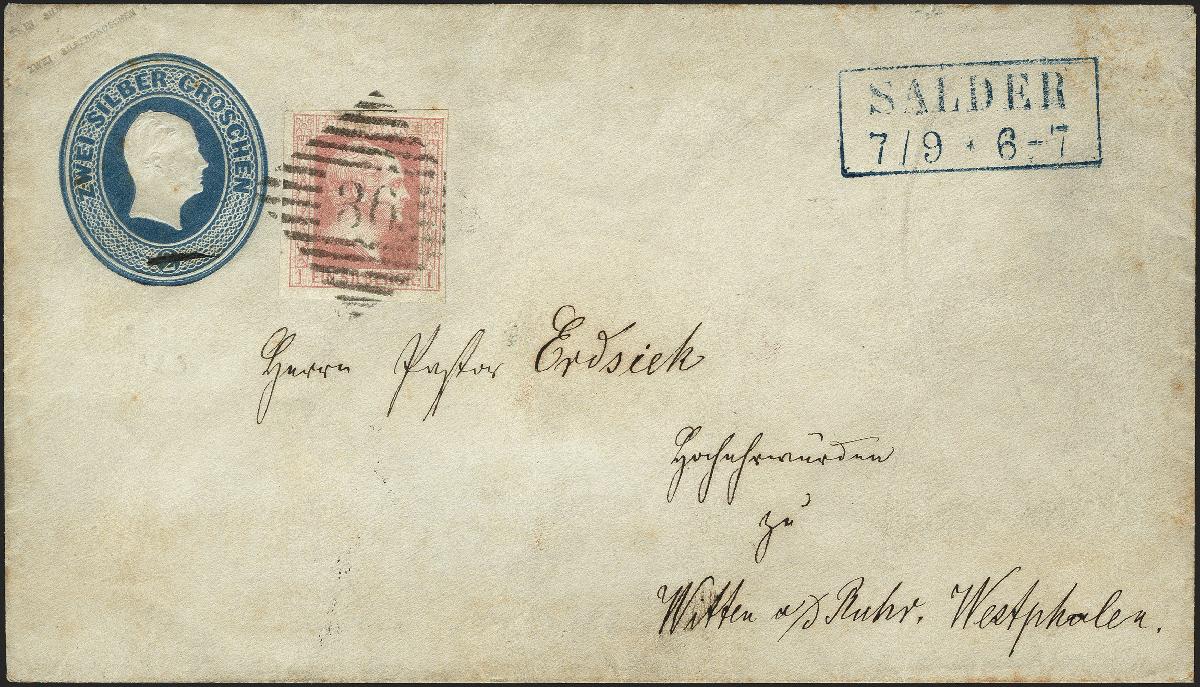 ZWEI SILBERGROSCHEN
ZWEI SILBER GROSCHEN
2
SALDER
7/9 · 6-7
36
1 1
Herrn Pastor Erdsiek
Hochehrwürden
zu
Witten a/d Ruhr. Westphalen.